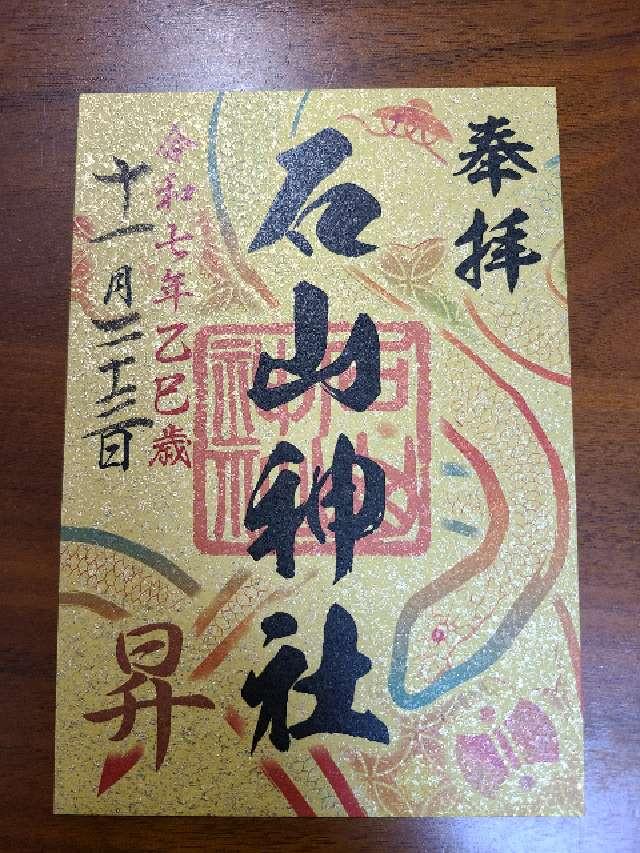 奉拝
石山神社
令和七年乙巳歳
十一月二十二日
昇